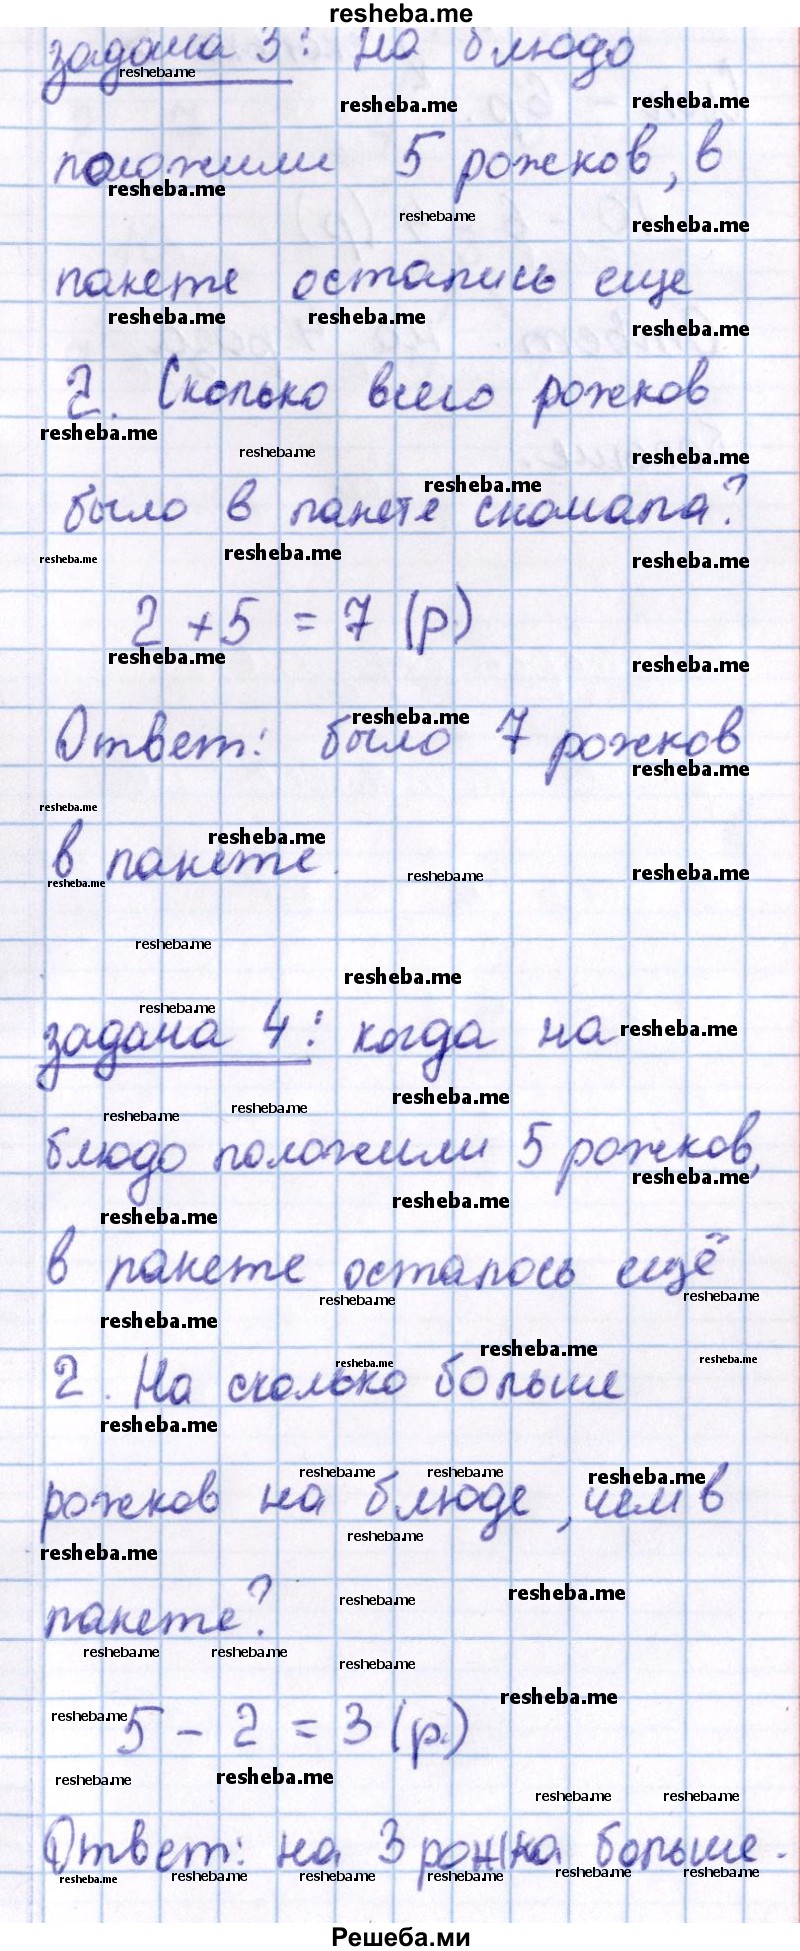 resheba.me
задача 3: На блюдо
положили 5 рожков, в
пакете остались еще
2. Сколько всего рожков
было в пакете сначала?
2 + 5 = 7 (р.)
Ответ: было 7 рожков
в пакете.
задача 4: когда на
блюдо положили 5 рожков,
в пакете осталось ещё
2. На сколько больше
рожков на блюде, чем в
пакете?
5 - 2 = 3 (р.)
Ответ: на 3 рожка больше.
Решеба.ми